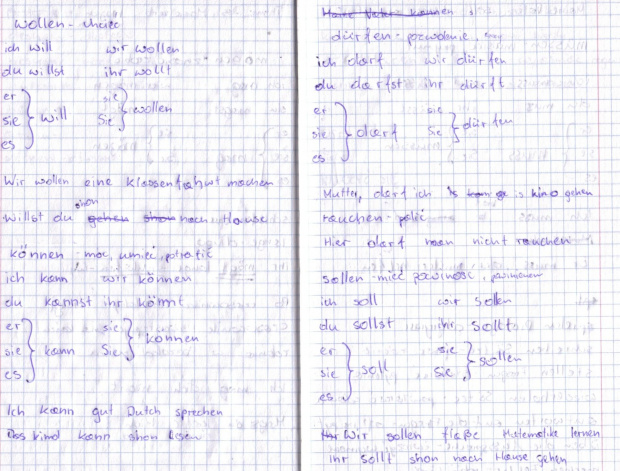 wollen - chcieć
ich will wir wollen
du willst ihr wollt
er sie
sie will Sie wollen
es
Wir wollen eine Klassenfahrt machen
shon
Willst du gehen shon nach Hause
können - moc, umieć, potrafić
ich kann wir können
du kannst ihr könnt
er sie
sie kann Sie können
es
Ich kann gut Dutch sprechen
Das kind kann shon lesen
können
dürfen - pozwolenie,
ich darf wir dürfen
du darfst ihr dürft
er sie
sie darf Sie dürfen
es
Mutter, darf ich is kino gehen
rauchen - palić
Hier darf man nicht rauchen
sollen - mieć powinność,
ich soll wir sollen
du sollst ihr sollt
er sie
sie soll sie sollen
es
Wir sollen Matematike lernen
Ihr sollt shon nach Hause gehen